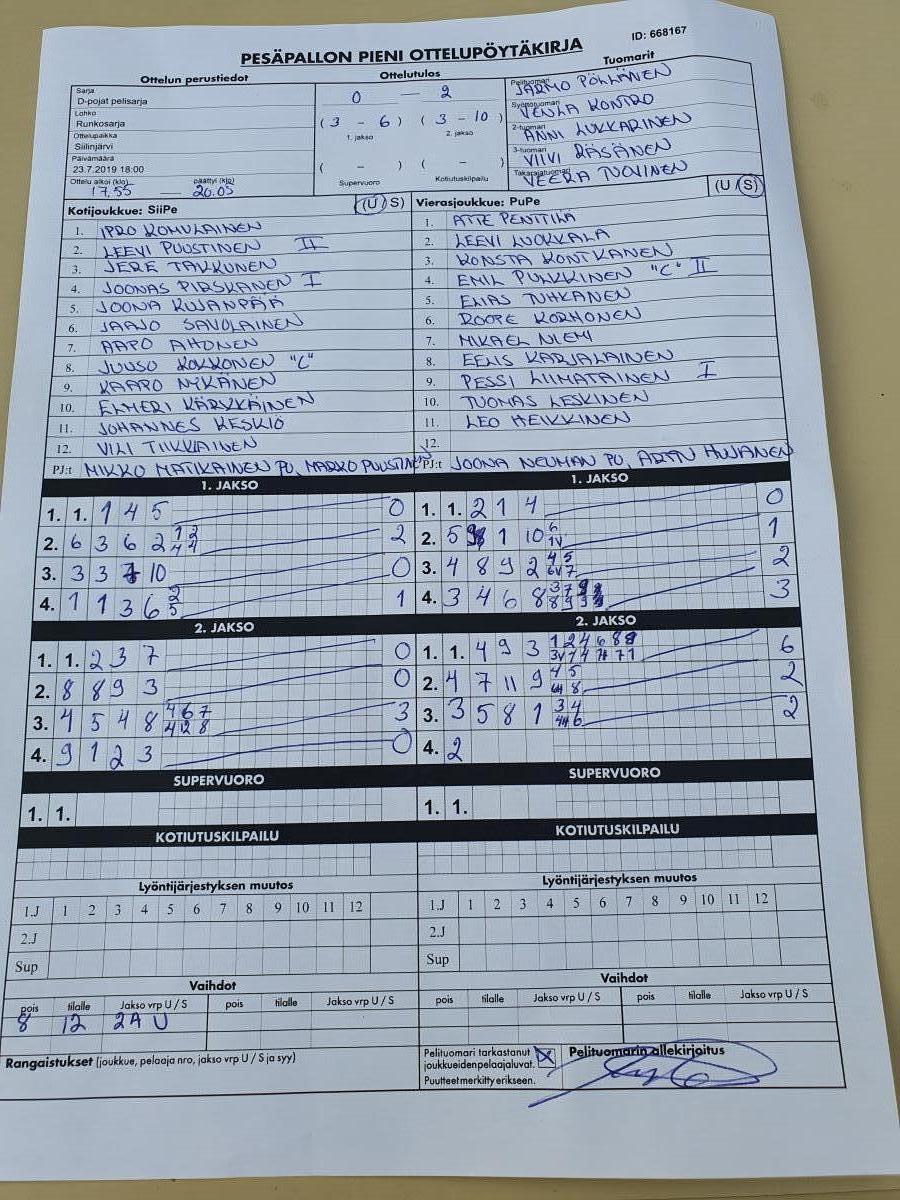 PESÄPALLON PIENI OTTELUPÖYTÄKIRJA
ID: 668167
Ottelun perustiedot
Ottelutulos
Tuomarit
Sarja
D-pojat pelisarja
Lohko
Runkosarja
Ottelupaikka
Siilinjärvi
Päivämäärä
23.7.2019 18:00
Ottelu alkoi (klo) päättyi (klo)
17.55 — 20.05
0 — 2
( 3 - 6 ) ( 3 - 10 )
1. jakso 2. jakso
( - ) ( - )
Supervuoro Kotiutuskilpailu
Pelituomari
JARMO PÖLLÄNEN
Syöttötuomari
VENLA KONTRO
2-tuomari
ANNI LUKKARINEN
3-tuomari
VIIVI RÄSÄNEN
Takarajatuomari
VEERA TUOVINEN
Kotijoukkue: SiiPe (U S)
1. IPRO KOMULAINEN
2. LEEVI PUUSTINEN II
3. JERE TAKKUNEN
4. JOONAS PIRSKANEN I
5. JOONA KUJANPÄÄ
6. JAAJO SAVOLAINEN
7. AAPO AHONEN
8. JUUSO KOKKONEN "C"
9. KAAPO NYKÄNEN
10. ELMERI KÄRKKÄINEN
11. JOHANNES KESKIÖ
12. VILI TIIKKAINEN
PJ:t MIKKO MATIKAINEN PU, MARKO PUUSTINEN
Vierasjoukkue: PuPe (U S)
1. ATTE PENTTILÄ
2. LEEVI LUOKKALA
3. KONSTA KONTKANEN
4. EMIL PULKKINEN "C" II
5. ELIAS TUHKANEN
6. ROOPE KORHONEN
7. MIKAEL NIEMI
8. EELIS KARJALAINEN
9. PESSI LIIMATAINEN I
10. TUOMAS LESKINEN
11. LEO HEIKKINEN
12.
PJ:t JOONA NEUMAN PU, ARTTU HUJANEN
1. JAKSO
1. 1. 1 4 5 0
2. 6 3 6 2 1 2 2
4 4
3. 3 3 10 0
4. 1 1 3 6 2 1
5
1. JAKSO
1. 1. 2 1 4 0
2. 5 1 10 6 1
1V
3. 4 8 9 2 4 5 2
6V 7
4. 3 4 6 8 3 7 3
8 9
2. JAKSO
1. 1. 2 3 7 0
2. 8 8 9 3 0
3. 4 5 4 8 4 6 7 3
4 12 8
4. 9 1 2 3 0
2. JAKSO
1. 1. 4 9 3 1 2 4 6 8 6
3V 7 4 7 1
2. 4 7 11 9 4 5 2
8
3. 3 5 8 1 3 4 2
6
4. 2
SUPERVUORO
1. 1.
SUPERVUORO
1. 1.
KOTIUTUSKILPAILU
KOTIUTUSKILPAILU
Lyöntijärjestyksen muutos
1.J 1 2 3 4 5 6 7 8 9 10 11 12
2.J
Sup
Lyöntijärjestyksen muutos
1.J 1 2 3 4 5 6 7 8 9 10 11 12
2.J
Sup
Vaihdot
pois tilalle Jakso vrp U / S pois tilalle Jakso vrp U / S
8 12 2A U
Vaihdot
pois tilalle Jakso vrp U / S pois tilalle Jakso vrp U / S
Rangaistukset (joukkue, pelaaja nro, jakso vrp U / S ja syy)
Pelituomari tarkastanut
joukkueiden pelaajaluvat. X
Puutteet merkitty erikseen.
Pelituomarin allekirjoitus